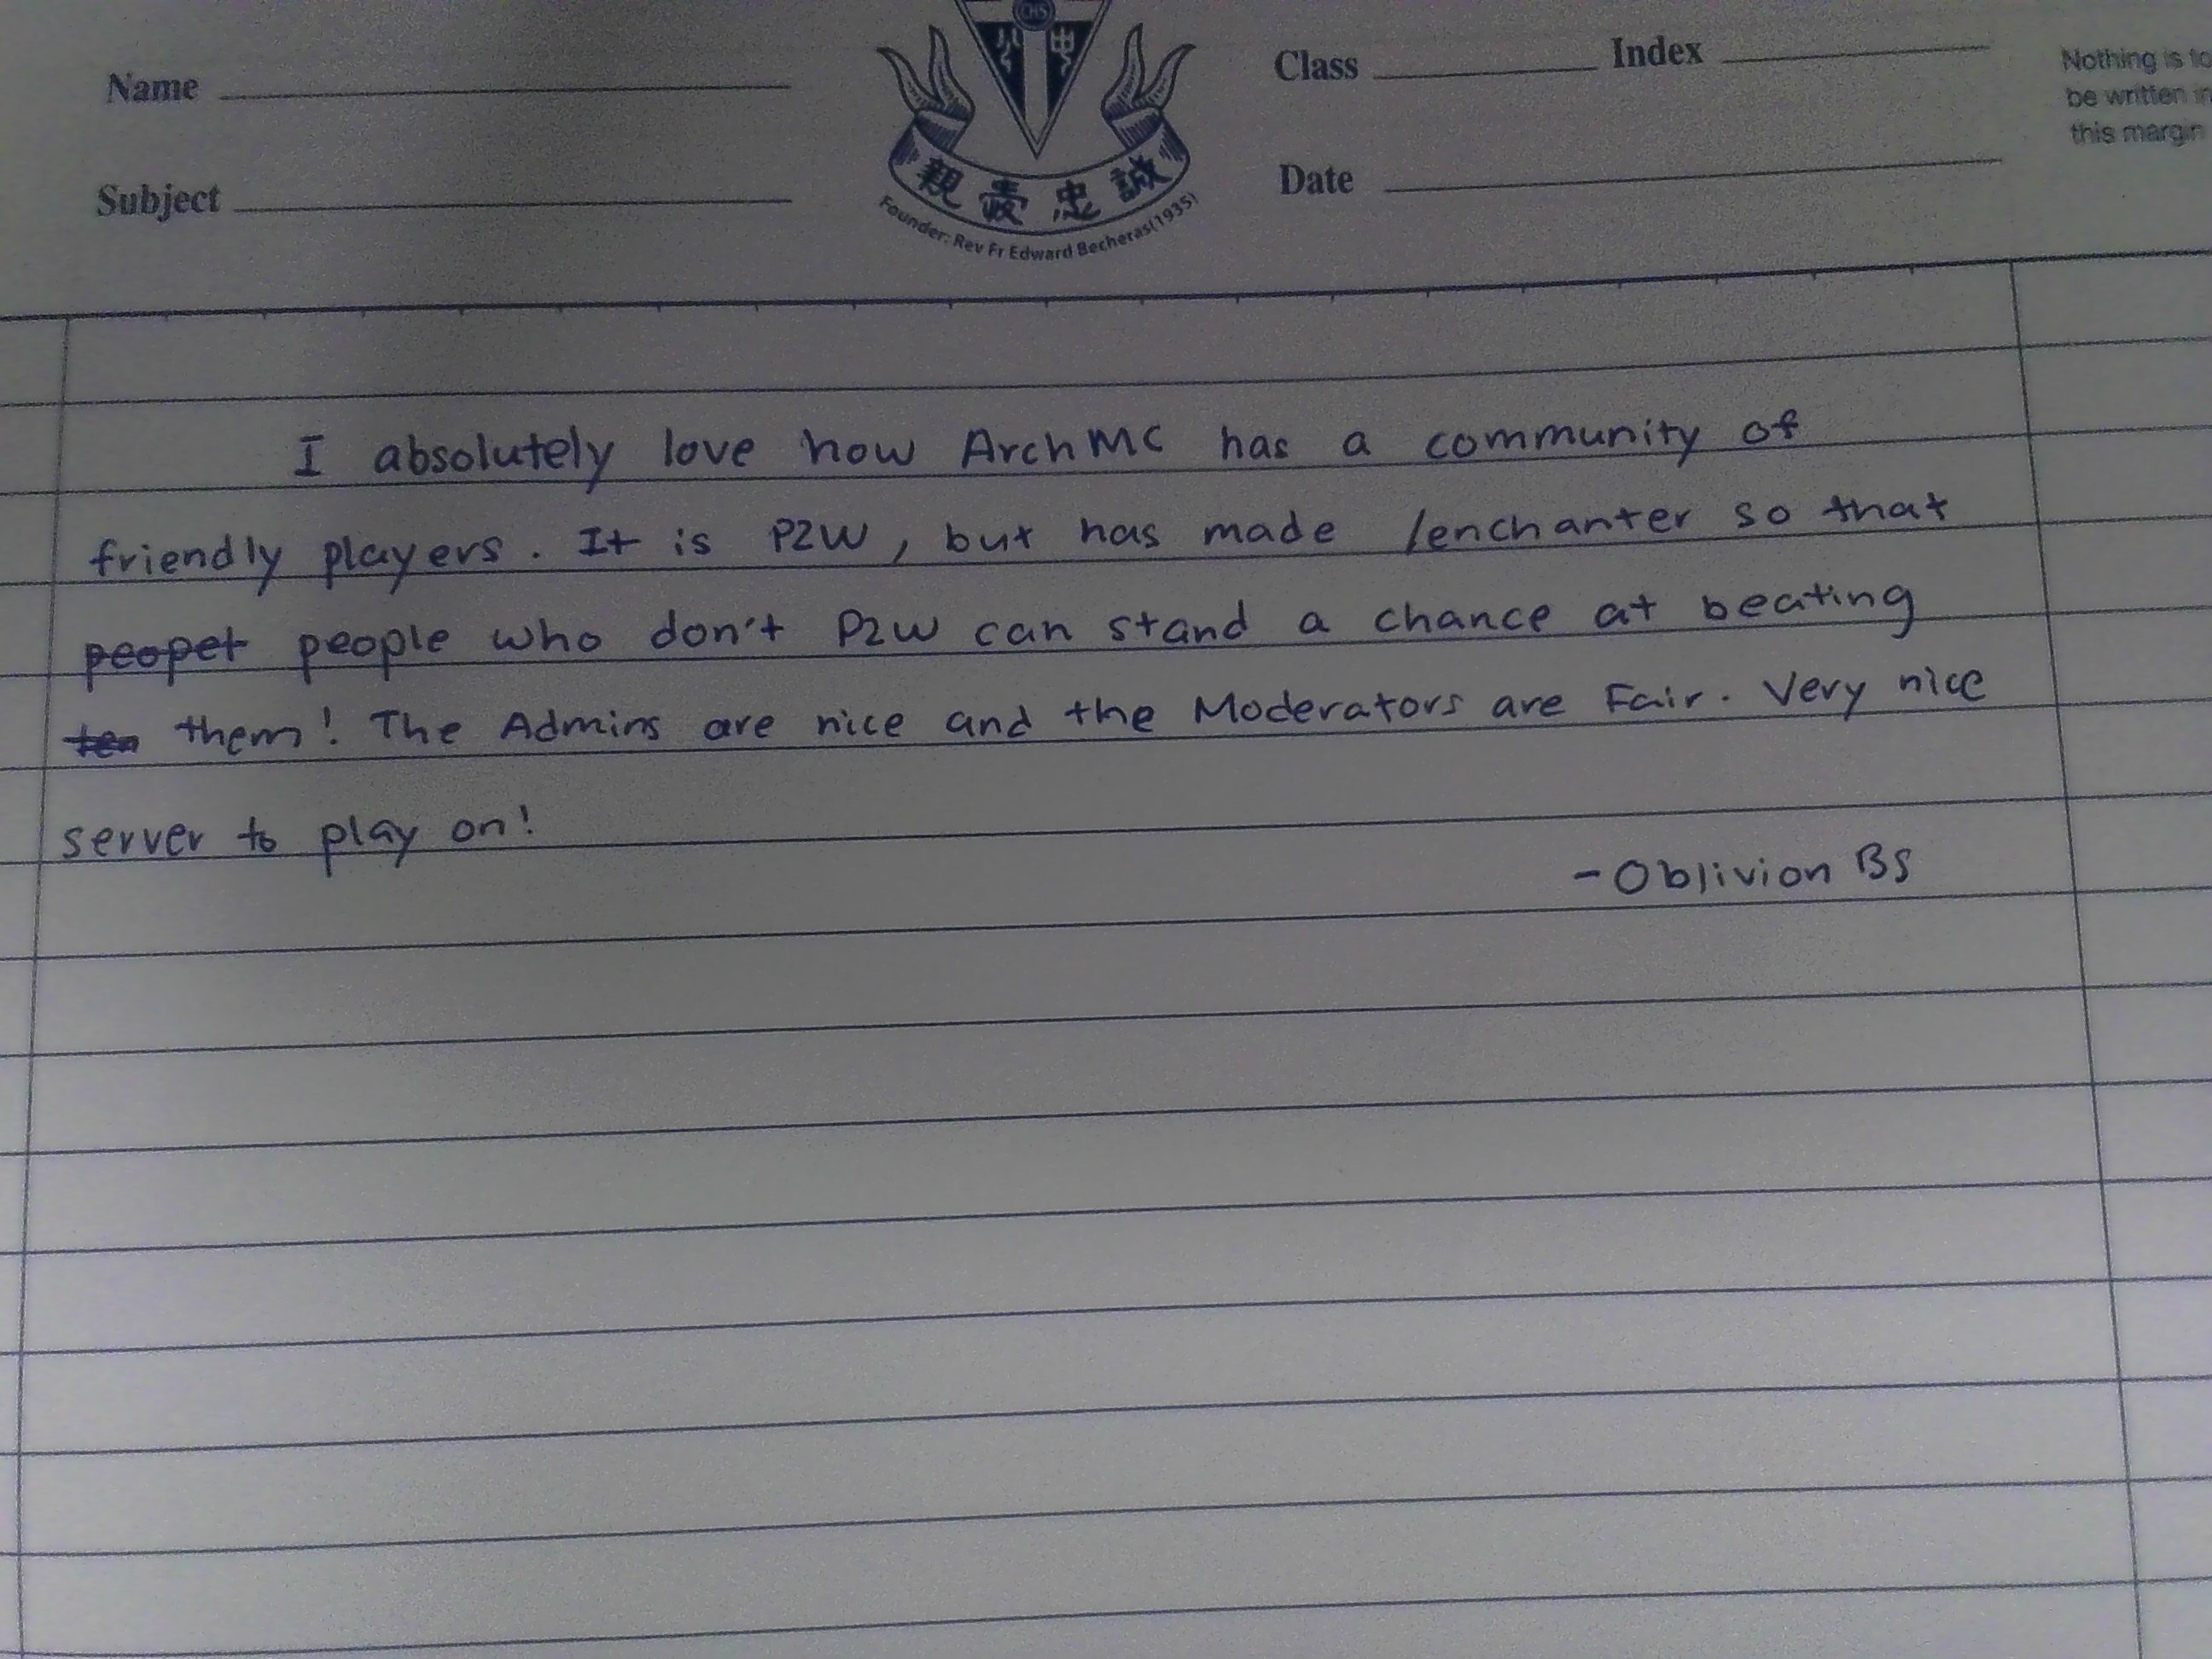 CHS
公 中
Name
Class
Index
Nothing is to
be written in
this margin
Subject
Date
親 愛 忠 誠
Founder: Rev Fr Edward Becheras(1935)
I absolutely love how ArchMC has a community of
friendly players. It is P2W, but has made /enchanter so that
peopet people who don't P2W can stand a chance at beating
ten them! The Admins are nice and the Moderators are Fair. Very nice
server to play on!
-Oblivion BS